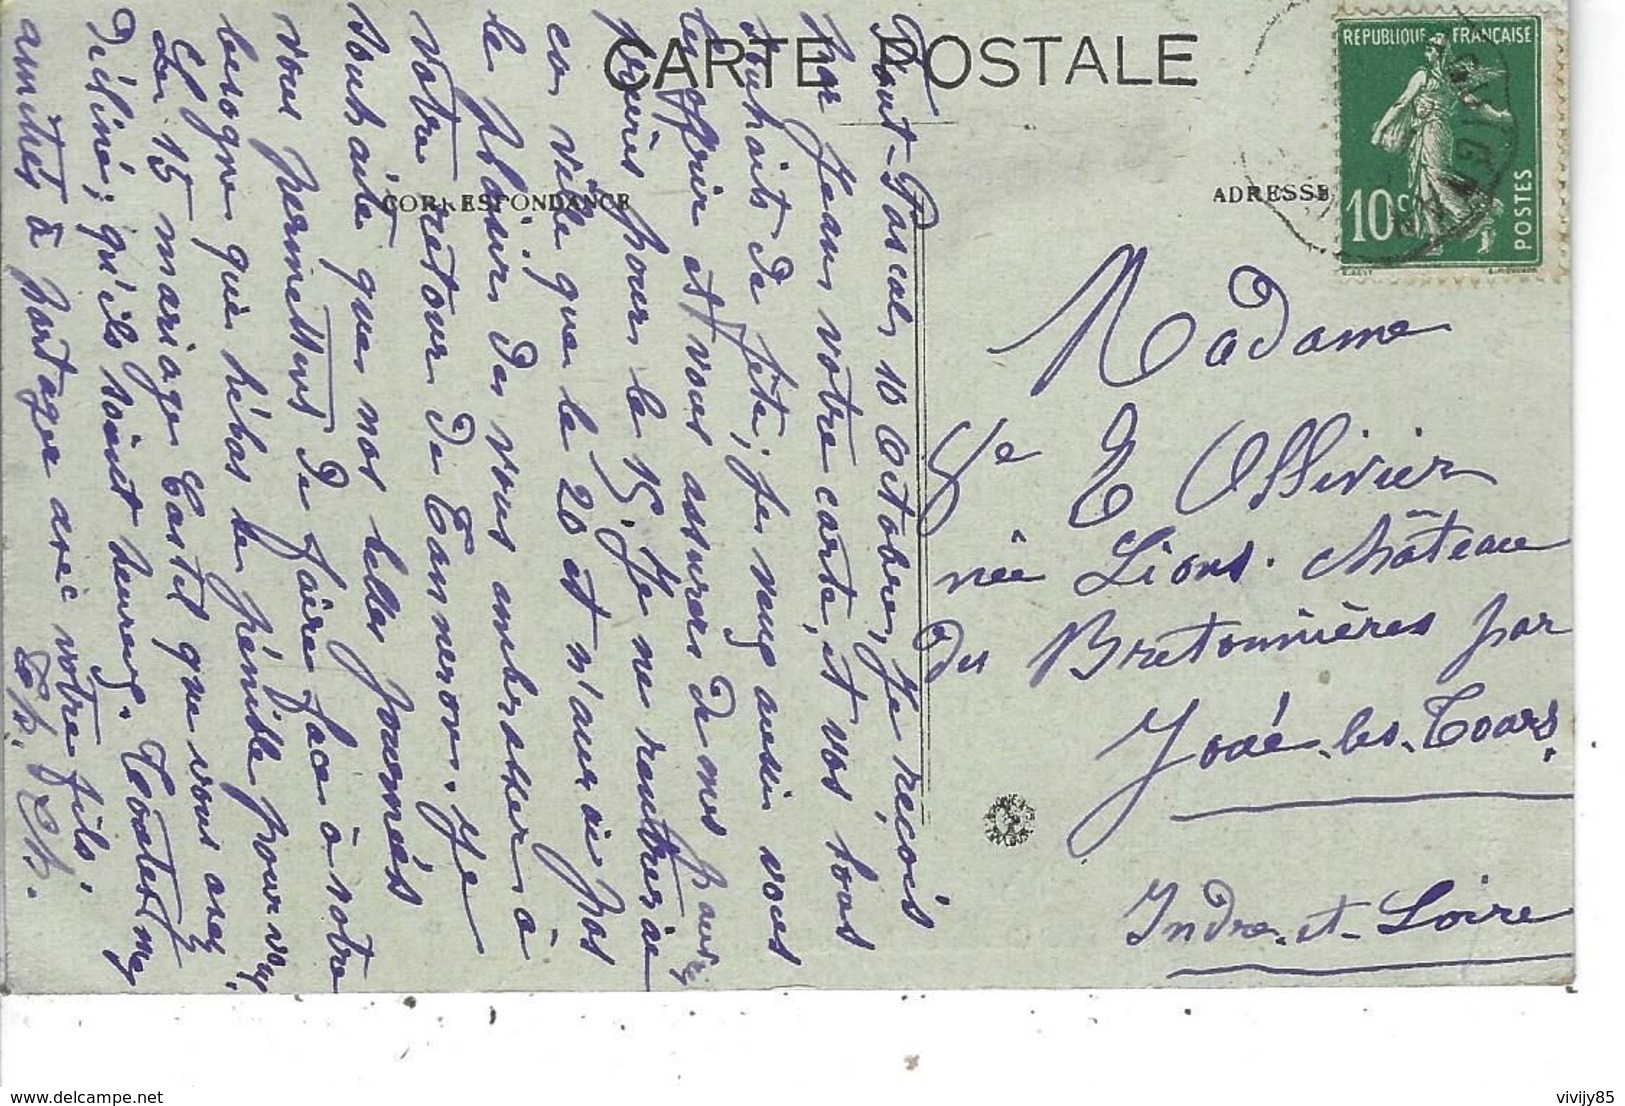 CARTE POSTALE
CORRESPONDANCE
ADRESSE
RÉPUBLIQUE FRANÇAISE
10c
POSTES
Pont-Pascal, 10 Octobre, Je reçois
par Jeanne votre carte, et vos bons
souhaits de fête; je veux aussi vous
les offrir et vous assurer de mes pauvres
prières pour le 15. Je ne rentrerai
en ville que le 20 et n'aurai pas
le plaisir de vous embrasser à
votre retour de Canneron. Je
souhaite que nos belles journées
vous permettent de faire face à votre
besogne qui hélas be pénible pour vous.
Le 15 mariage Castel que vous avez
décliné; qu'ils soient heureux. Toutes mes
amitiés à partager avec votre fils.
Madame
Vve E Ollivier
née Lions. château
des Bretonnières par
Joué-les-Tours.
Indre-et-Loire
vivijy85
www.delcampe.net